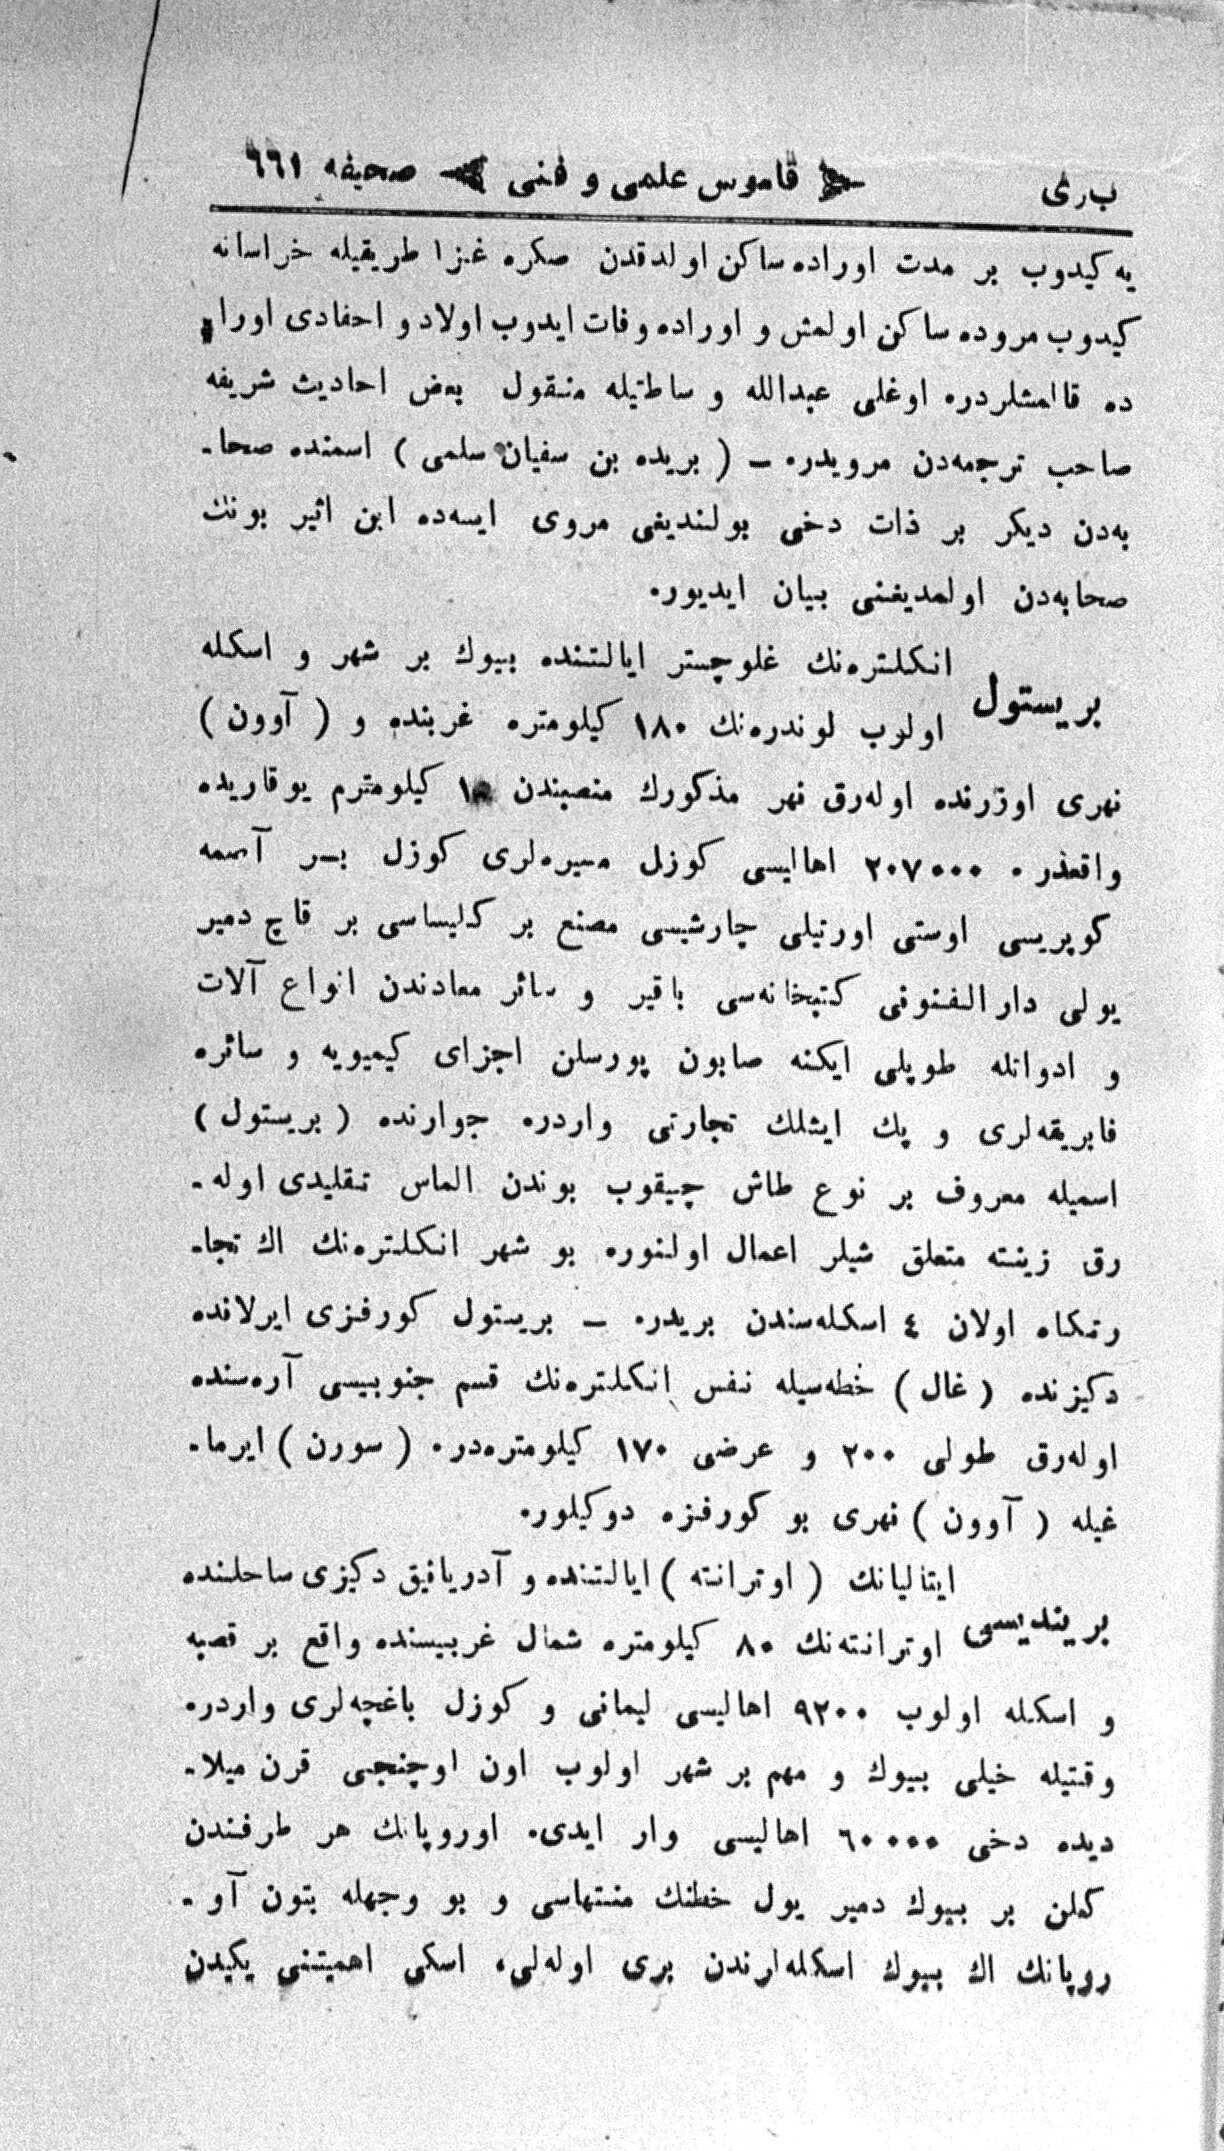 ب‌ری قاموس علمی و فنی صحیفه ٦٦١
یه کیدوب بر مدت اوراده ساکن اولدقدن صکره غزا طریقیله خراسانه
کیدوب مروده ساکن اولمش و اوراده وفات ایدوب اولاد و احفادی اورا
ده قالمشلردر. اوغلی عبدالله و ساطتیله منقول بعض احادیث شریفه
صاحب ترجمه‌دن مرویدر. ـ ( بریده بن سفیان سلمی ) اسمنده صحا-
به‌دن دیکر بر ذات دخی بولندیغی مروی ایسه‌ده ابن اثیر بونك
صحابه‌دن اولمدیغنی بیان ایدیور.
بریستول انکلتره‌نك غلوچستر ایالتنده بیوك بر شهر و اسکله
اولوب لوندره‌نك ١٨٠ کیلومتره غربنده و ( آوون )
نهری اوزرنده اوله‌رق نهر مذکورك منصبندن کیلومترم یوقاریده
واقعدر. ٢٠٧٠٠٠ اهالیسی کوزل مسیره‌لری کوزل بر آصمه
کوپریسی اوستی اورتیلی چارشیسی مصنع بر کلیساسی بر قاچ دمیر
یولی دارالفنونی کتبخانه‌سی باقیر و سائر معادندن انواع آلات
و ادواتله طوپلی ایکنه صابون پورسلن اجزای کیمیویه و سائره
فابریقه‌لری و پك ایشلك تجارتی واردر. جوارنده ( بریستول )
اسمیله معروف بر نوع طاش چیقوب بوندن الماس تقلیدی اوله-
رق زینته متعلق شیلر اعمال اولنور. بو شهر انکلتره‌نك اك تجا-
رتکاه اولان ٤ اسکله‌سندن بریدر. ـ بریستول کورفزی ایرلانده
دکیزنده ( غال ) خطه‌سیله نفس انکلتره‌نك قسم جنوبیسی آره‌سنده
اوله‌رق طولی ٢٠٠ و عرضی ١٧٠ کیلومتره‌در. ( سورن ) ایرما-
غیله ( آوون ) نهری بو کورفزه دوکیلور.
بریندیسی ایتالیانك ( اوترانته ) ایالتنده و آدریاتیق دکیزی ساحلنده
اوترانته‌نك ٨٠ کیلومتره شمال غربیسنده واقع بر قصبه
و اسکله اولوب ٩٢٠٠ اهالیسی لیمانی و کوزل باغچه‌لری واردر.
وقتیله خیلی بیوك و مهم بر شهر اولوب اون اوچنجی قرن میلا-
دیده دخی ٦٠٠٠٠ اهالیسی وار ایدی. اوروپانك هر طرفندن
کلن بر بیوك دمیر یول خطنك منتهاسی و بو وجهله بتون آو-
روپانك اك بیوك اسکله‌لرندن بری اوله‌لی، اسکی اهمیتنی یکیدن